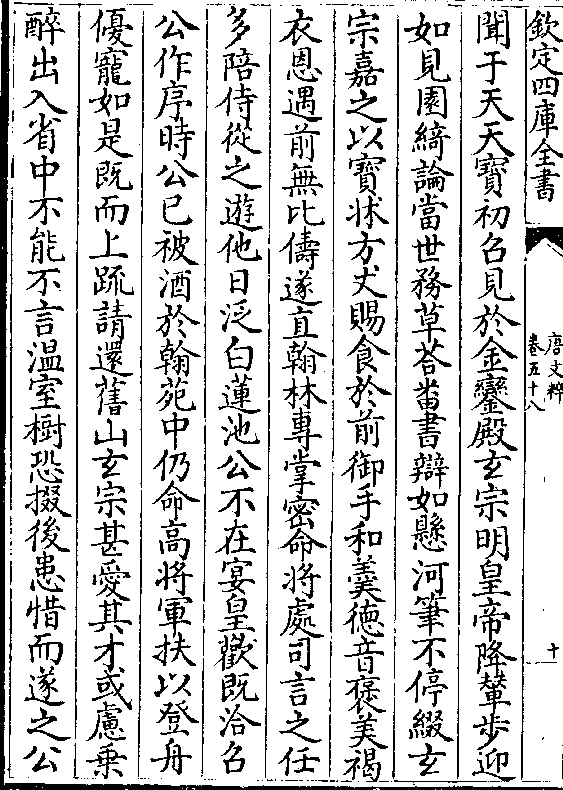 欽定四庫全書
唐文粹
卷五十八
十
聞于天天寳初召見於金鑾殿玄宗明皇帝降輦步迎
如見園綺論當世務草荅蕃書辯如懸河筆不停綴玄
宗嘉之以寳牀方丈賜食於前御手和羹徳音褒美褐
衣恩遇前無比儔遂直翰林専掌密命將處司言之任
多陪侍從之遊他日泛白蓮池公不在宴皇歡既洽召
公作序時公已被酒於翰苑中仍命高將軍扶以登舟
優寵如是既而上䟽請還舊山玄宗甚愛其才或慮乗
醉出入省中不能不言温室樹恐掇後患惜而遂之公